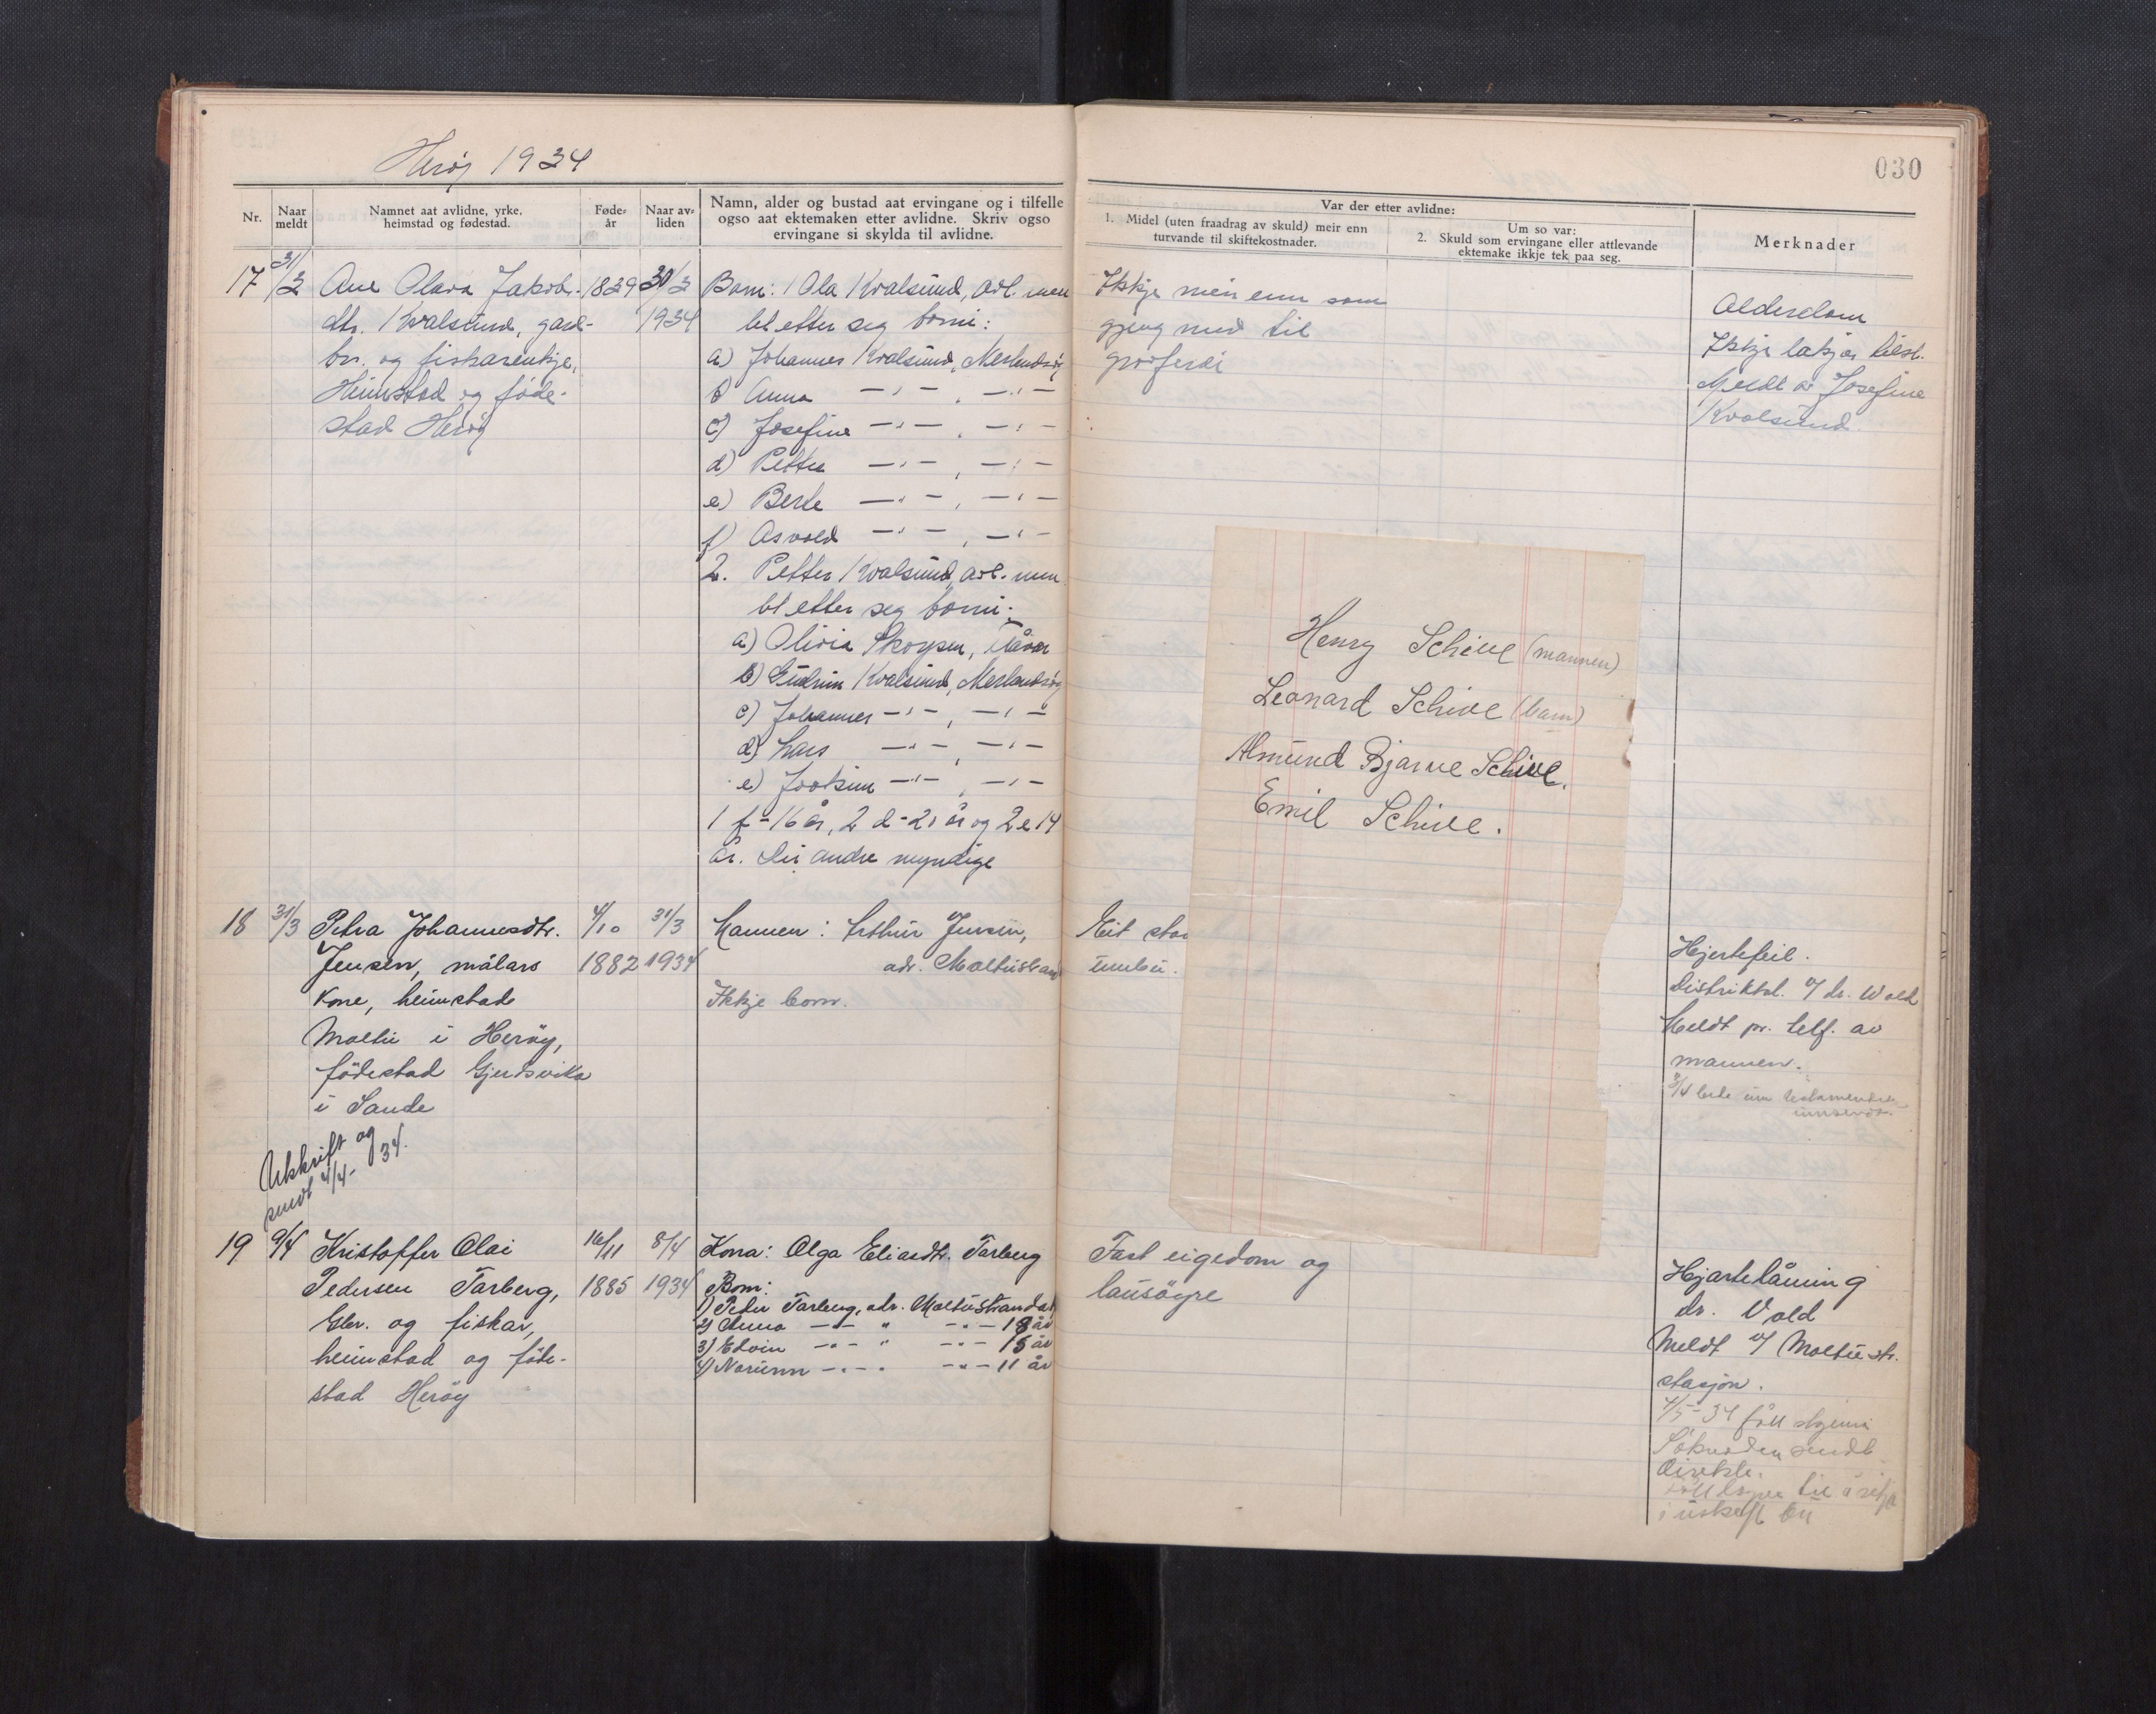 Herøy 1934
030
Nr.
Naar meldt
Namnet aat avlidne, yrke, heimstad og fødestad.
Føde-år
Naar av-liden
Namn, alder og bustad aat ervingane og i tilfelle
ogso aat ektemaken etter avlidne. Skriv ogso
ervingane si skylda til avlidne.
Var der etter avlidne:
1. Midel (uten fraadrag av skuld) meir enn
turvande til skiftekostnader.
Um so var:
2. Skuld som ervingane eller attlevande
ektemake ikkje tek paa seg.
Merknader
17 31/3 Ane Olava Jakobs- 1839 30/3
dtr. Kvalsund, gard- 1934
br. og fiskarenkje,
Heimstad og føde-
stad Herøy
Born: 1 Ola Kvalsund, avl. men
let etter seg borni:
a) Johannes Kvalsund, Merlandsøy
b) Anna —"— , —"—
c) Josefine —"— , —"—
d) Petter —"— , —"—
e) Berte —"— , —"—
f) Asvald —"— , —"—
2. Petter Kvalsund, avl. men
let etter seg borni:
a) Olivia Skorpen, Flåvær
b) Gudrun Kvalsund, Merlandsøy
c) Johannes —"— , —"—
d) Lars —"— , —"—
e) Joakim —"— , —"—
1 f - 16 år, 2 d - 21 år og 2 e 14
år. Dei andre myndige
Ikkje meir enn som
gjeng med til
gravferdi
Alderdom
Ikkje lækjar tilst.
Meldt av Josefine
Kvalsund.
Henry Schive (mannen)
Leonard Schive (barn)
Almund Bjarne Schive.
Emil Schive.
18 31/3 Petra Johannesdtr. 4/10 31/3
Jensen, målars 1882 1934
kone, heimstad
Moltu i Herøy,
födestad Gjerdsvika
i Sande
Mannen: Arthur Jensen,
adr. Moltustrand
Ikkje born.
Eit
umbu.
Hjertefeil.
Distriktsl. v/ dr. Wold
Meldt pr. telf. av
mannen.
Utskrift og
sendt 4/4- 34.
19 9/4 Kristoffer Olai 16/11 8/4
Pedersen Tarberg, 1885 1934
Gbr. og fiskar,
heimstad og föde-
stad Heröy
Kona: Olga Eliasdtr. Tarberg
Born:
1) Peder Tarberg, adr. Moltustrand
2) Anna —"— " —"— 18 år
3) Edvin —"— " —"— 15 år
4) Norunn —"— " —"— 11 år
Fast eigedom og
lausöyre
Hjartelåming
dr. Vold
Meldt v/ Moltustr.
stasjon.
4/5 - 34
sendt
direkte.
i uskift bu